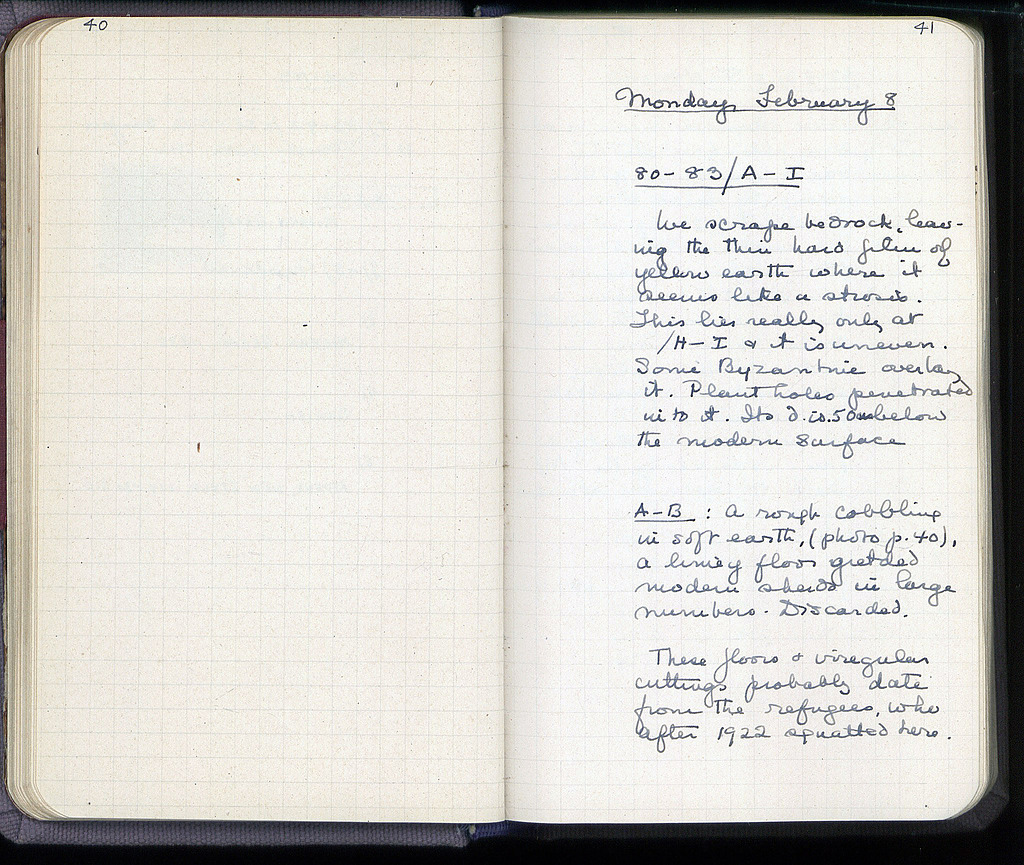 40
41
Monday, February 8
80-83/A-I
We scrape bedrock, leav-
ing the thin hard film of
yellow earth where it
seems like a strosis.
This lies really only at
/H-I & it is uneven.
Some Byzantine overlay
it. Plant holes penetrated
into it. Its d. is .50m below
the modern surface
A-B : A rough cobbling
in soft earth, (photo p. 40),
a limey floor yielded
modern sherds in large
numbers. Discarded.
These floors & irregular
cuttings probably date
from the refugees, who
after 1922 squatted here.